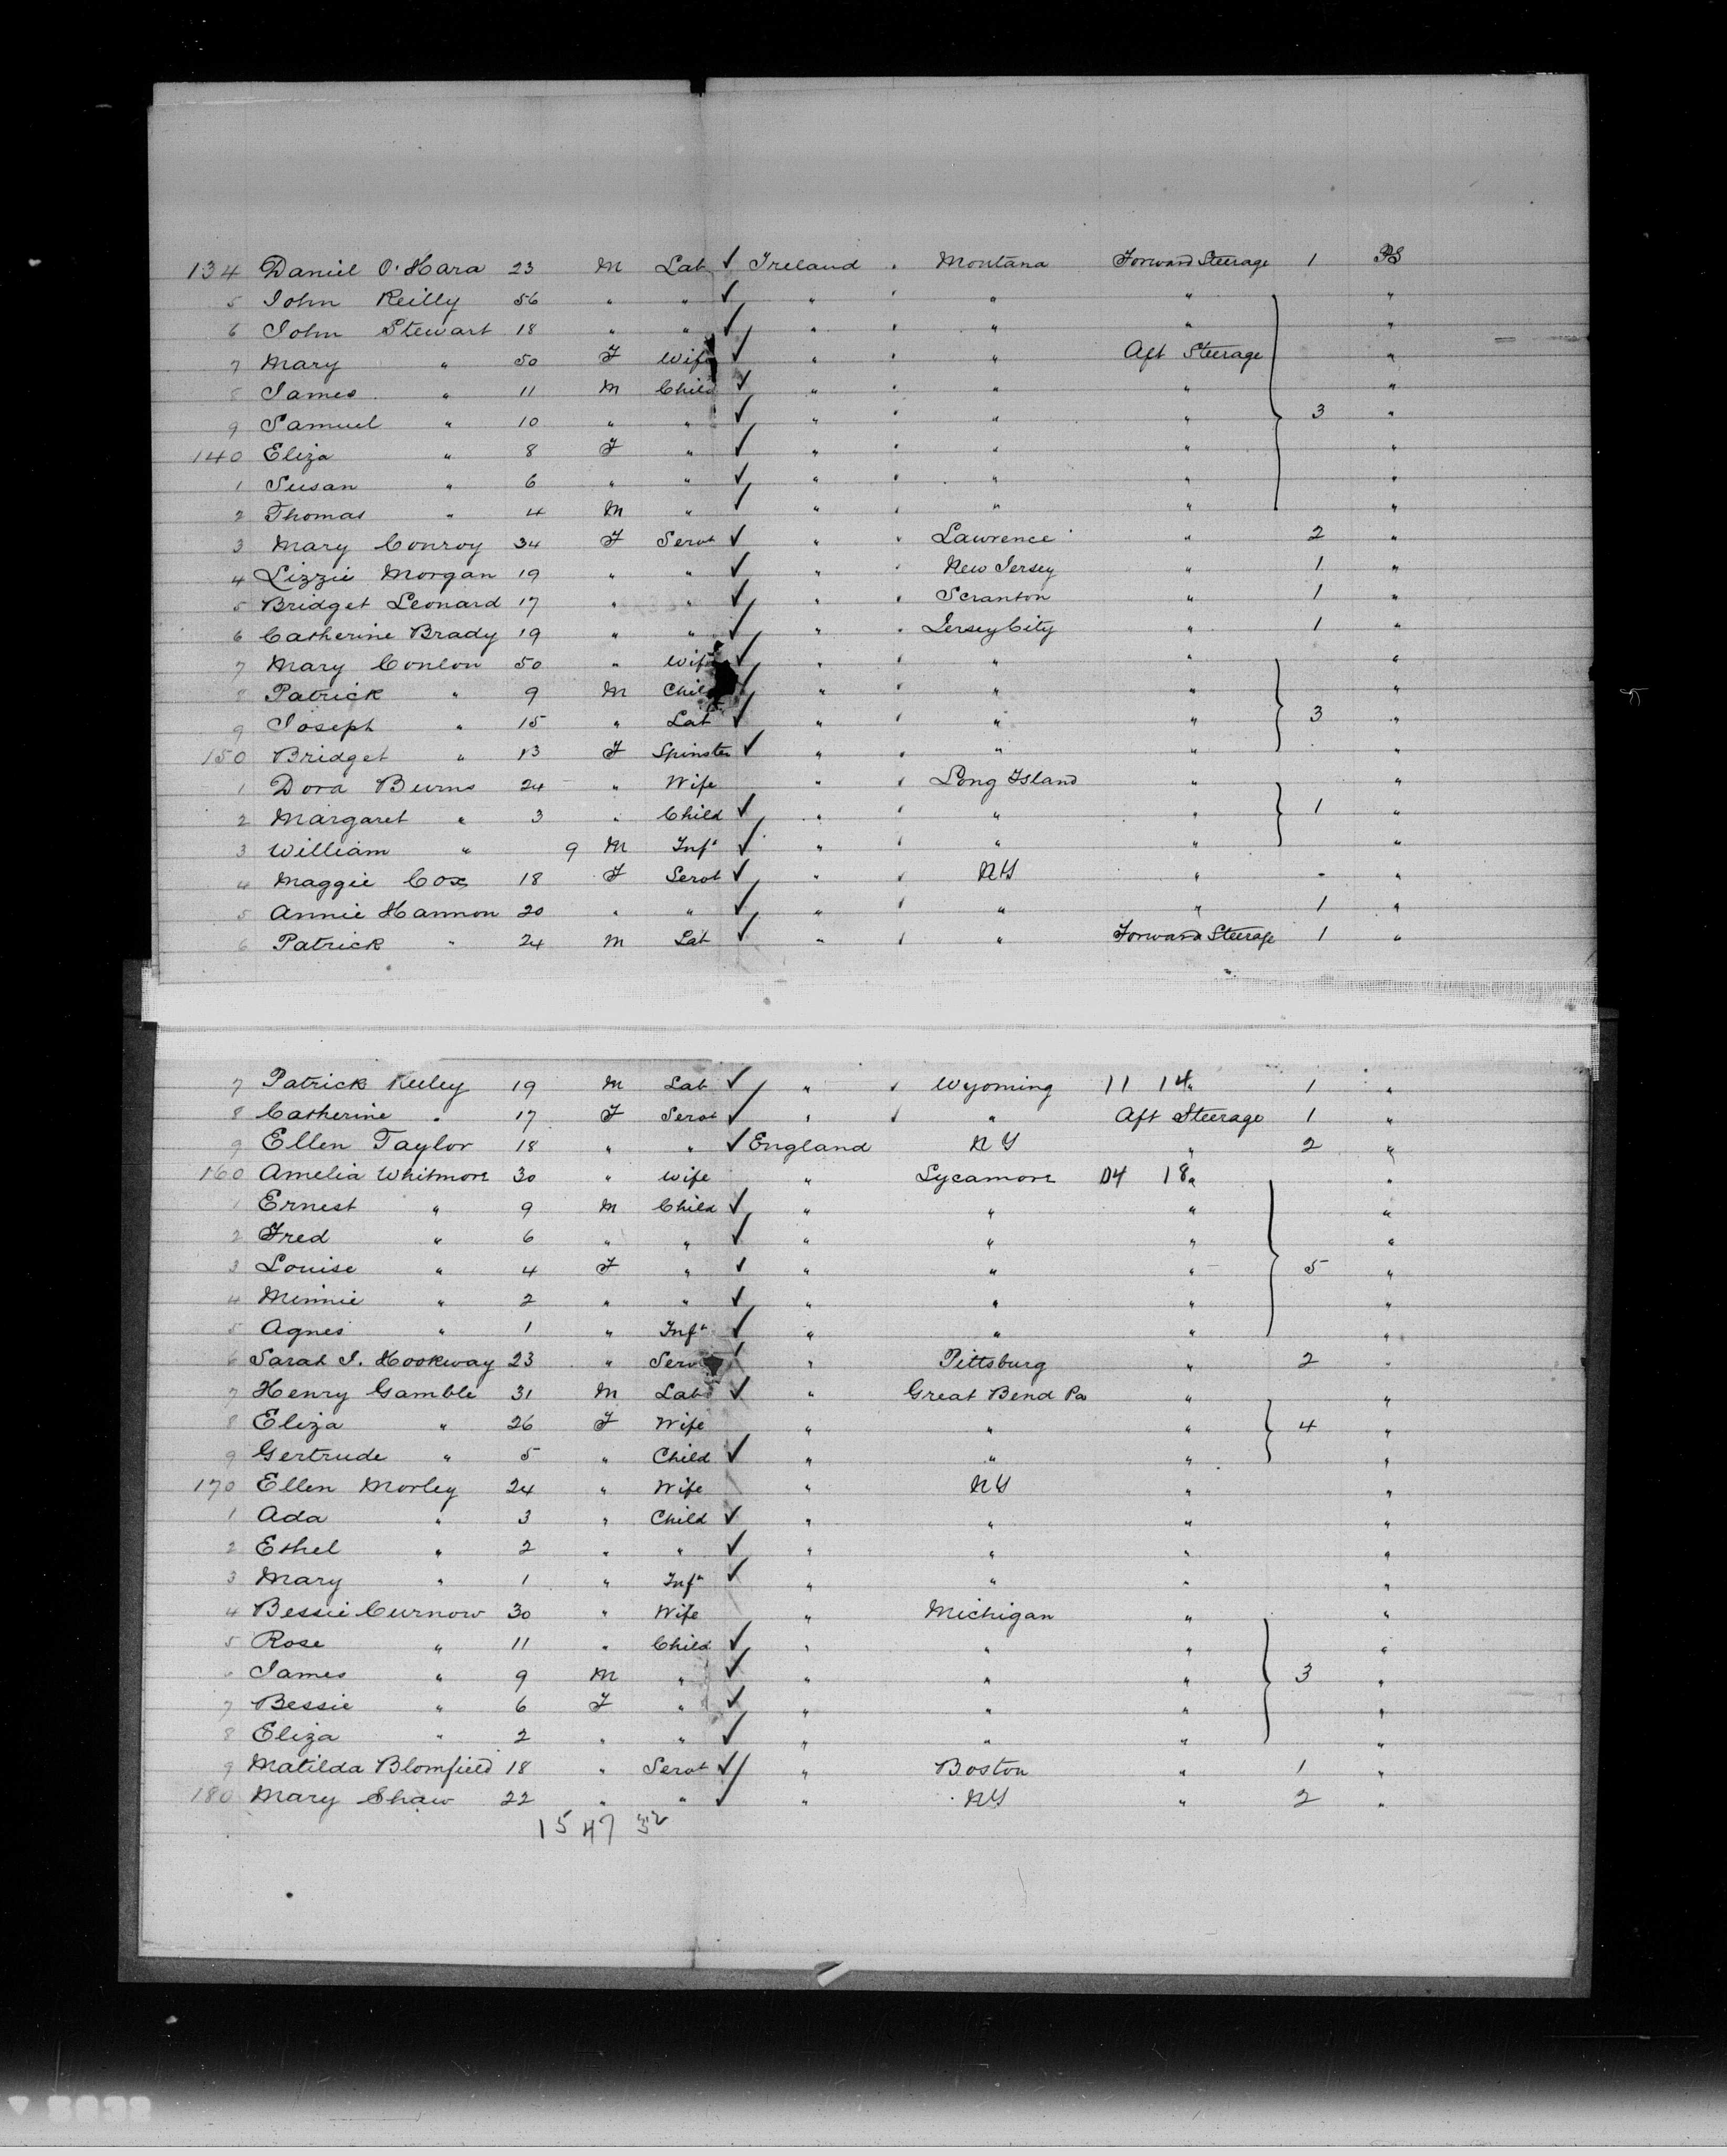 134 Daniel O'Hara 23 M Lab ✓ Ireland " Montana Forward Steerage 1 PS
5 John Reilly 56 " " ✓ " " " " "
6 John Stewart 18 " " ✓ " " " " "
7 Mary " 50 F Wife ✓ " " " Aft Steerage "
8 James " 11 M Child ✓ " " " " "
9 Samuel " 10 " " ✓ " " " " 3 "
140 Eliza " 8 F " ✓ " " " " "
1 Susan " 6 " " ✓ " " " " "
2 Thomas " 4 M " ✓ " " " " "
3 Mary Conroy 34 F Servt ✓ " " Lawrence " 2 "
4 Lizzie Morgan 19 " " ✓ " " New Jersey " 1 "
5 Bridget Leonard 17 " " ✓ " " Scranton " 1 "
6 Catherine Brady 19 " " ✓ " " Jersey City " 1 "
7 Mary Conlon 50 " Wife ✓ " " " " "
8 Patrick " 9 M Child ✓ " " " " "
9 Joseph " 15 " Lab ✓ " " " " 3 "
150 Bridget " 13 F Spinster ✓ " " " " "
1 Dora Burns 24 " Wife " " Long Island " "
2 Margaret " 3 " Child ✓ " " " " 1 "
3 William " 9 M Inft ✓ " " " " "
4 Maggie Cox 18 F Servt ✓ " " NY " - "
5 Annie Hannon 20 " " ✓ " " " " 1 "
6 Patrick " 24 M Lab ✓ " " " Forward Steerage 1 "
7 Patrick Keeley 19 M Lab ✓ " " Wyoming 11 14 " 1 "
8 Catherine " 17 F Servt ✓ " " " Aft Steerage 1 "
9 Ellen Taylor 18 " " ✓ England NY " 2 "
160 Amelia Whitmore 30 " Wife " Sycamore D4 18 " "
1 Ernest " 9 M Child ✓ " " " "
2 Fred " 6 " " ✓ " " " "
3 Louise " 4 F " ✓ " " " 5 "
4 Minnie " 2 " " ✓ " " " "
5 Agnes " 1 " Inft ✓ " " " "
6 Sarah J. Hookway 23 " Servt ✓ " Pittsburg " 2 "
7 Henry Gamble 31 M Lab ✓ " Great Bend Pa " "
8 Eliza " 26 F Wife " " " 4 "
9 Gertrude " 5 " Child ✓ " " " "
170 Ellen Morley 24 " Wife " NY " "
1 Ada " 3 " Child ✓ " " " "
2 Ethel " 2 " " ✓ " " " "
3 Mary " 1 " Inft ✓ " " " "
4 Bessie Curnow 30 " Wife " Michigan " "
5 Rose " 11 " Child ✓ " " " "
6 James " 9 M " ✓ " " " 3 "
7 Bessie " 6 F " ✓ " " " "
8 Eliza " 2 " " ✓ " " " "
9 Matilda Blomfield 18 " Servt ✓ " Boston " 1 "
180 Mary Shaw 22 " " ✓ " NY " 2 "
15 47 32